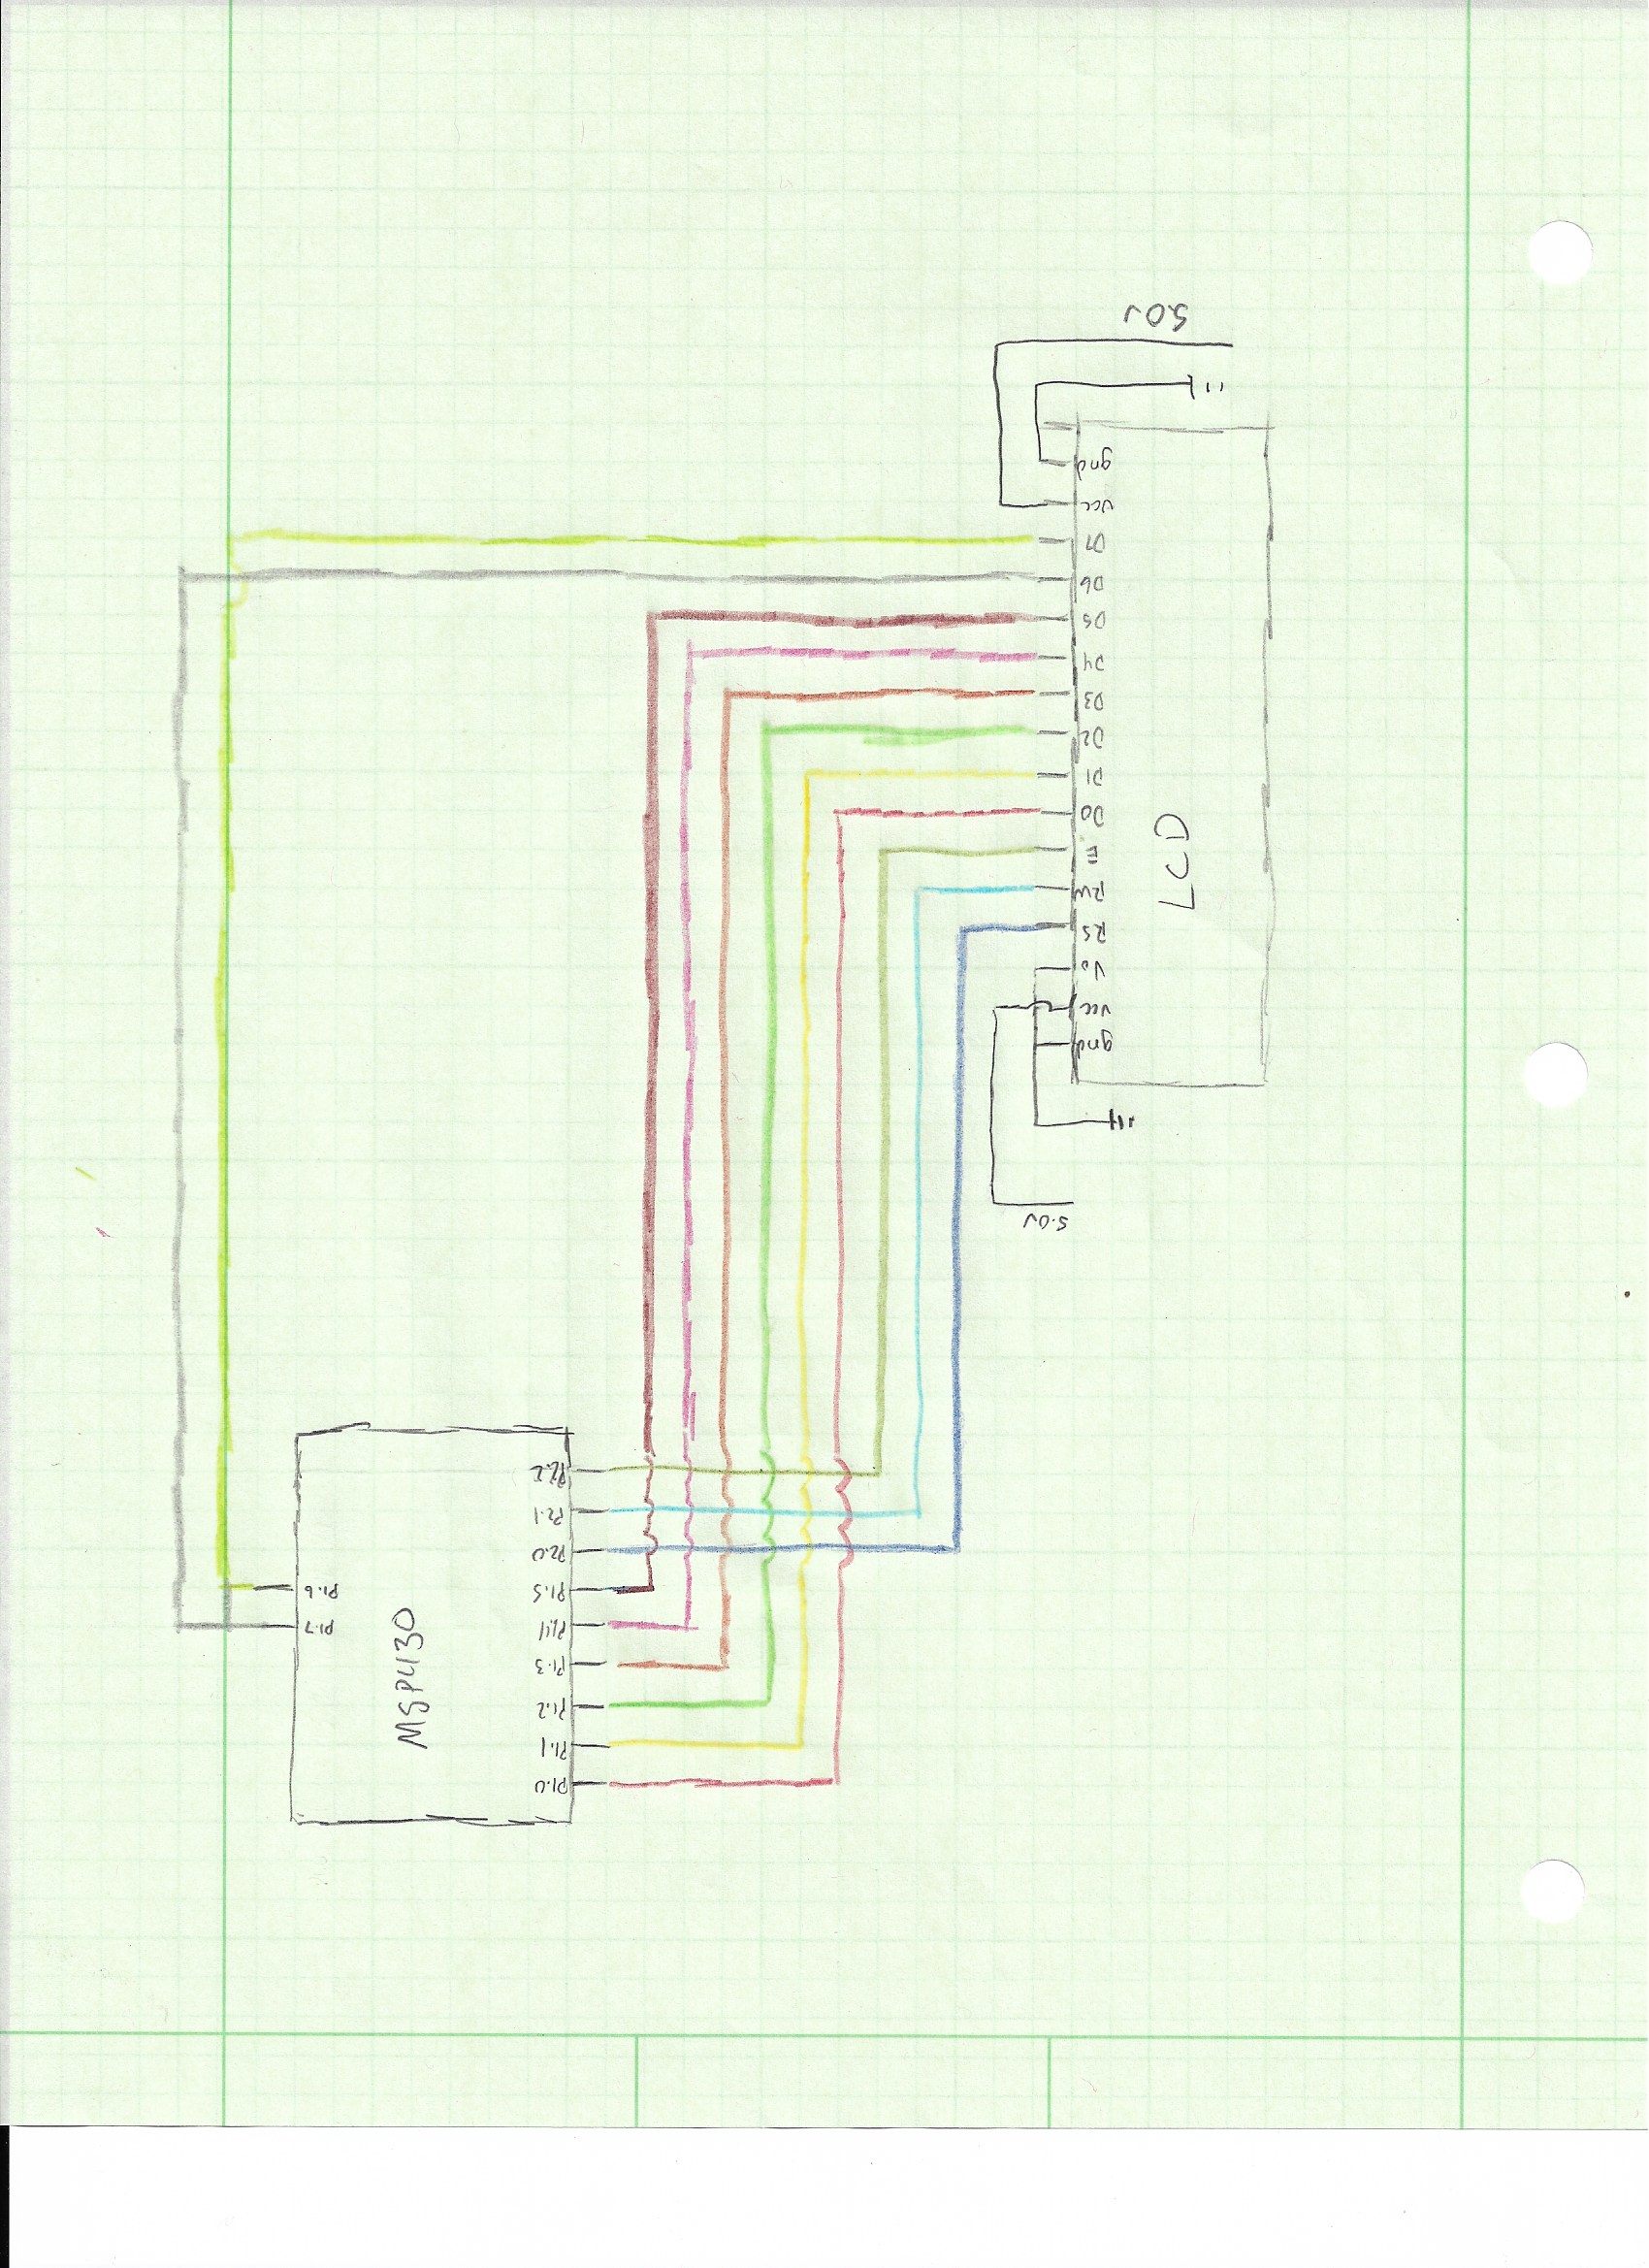 5.0V
gnd
Vcc
D7
D6
D5
D4
D3
D2
D1
D0
E
RW
RS
Vo
Vcc
gnd
5.0V
LCD
P2.2
P2.1
P2.0
P1.5
P1.4
P1.3
P1.2
P1.1
P1.0
P1.6
P1.7
MSP430